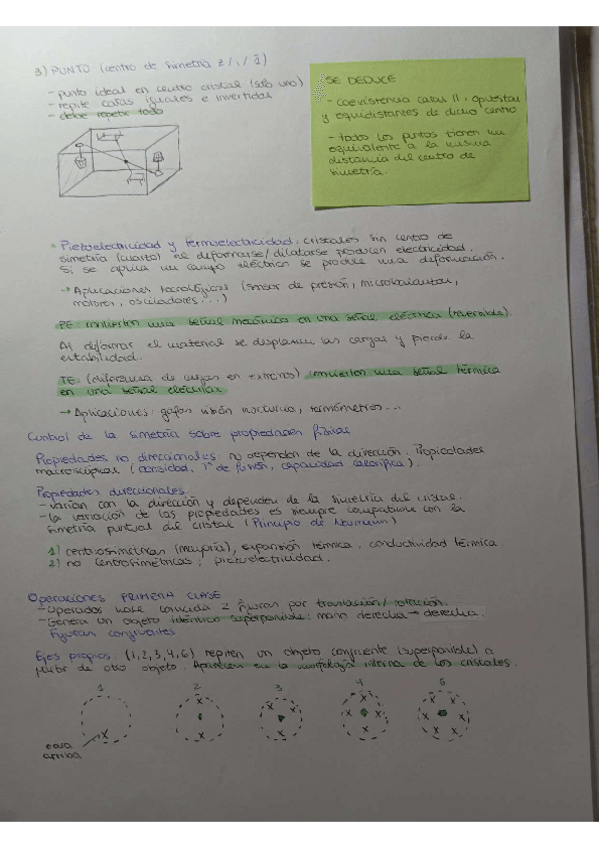 3) PUNTO (centro de simetría z / i / 1̄)
- punto ideal en centro cristal (solo uno)
- repite caras iguales e invertidas
- debe repetir todo
SE DEDUCE
- coexistencia caras II, opuestas
y equidistantes de dicho centro
- todos los puntos tienen un
equivalente a la misma
distancia del centro de
simetría.
* Piezoelectricidad y termoelectricidad: cristales sin centro de
simetría (cuarzo) al deformarse/dilatarse producen electricidad.
Si se aplica un campo eléctrico se produce una deformación.
→ Aplicaciones tecnológicas (sensor de presión, microbalanzas,
motores, osciladores...)
PE: convierten una señal mecánica en una señal eléctrica (reversible).
Al deformar el material se desplazan las cargas y pierde la
estabilidad.
TE: (diferencia de cargas en extremos) convierten una señal térmica
en una señal eléctrica
→ Aplicaciones: gafas visión nocturna, termómetros...
Control de la simetría sobre propiedades físicas
Propiedades no direccionales: no dependen de la dirección. Propiedades
macroscópicas (densidad, Tª de fusión, capacidad calorífica).
Propiedades direccionales
- varían con la dirección y dependen de la simetría del cristal.
- la variación de las propiedades es siempre compatible con la
simetría puntual del cristal (Principio de Neumann)
1) centrosimétricas (mayoría), expansión térmica, conductividad térmica.
2) no centrosimétricas; piezoelectricidad.
Operaciones PRIMERA CLASE
- Operados hace coincida 2 figuras por translación/rotación.
- Genera un objeto idéntico superponible: mano derecha → derecha.
Figuras congruentes
Ejes propios: (1,2,3,4,6) repiten un objeto congruente (superponible) a
partir de otro objeto. Aparecen en la morfología interna de los cristales.
1 2 3 4 6
cara
arriba